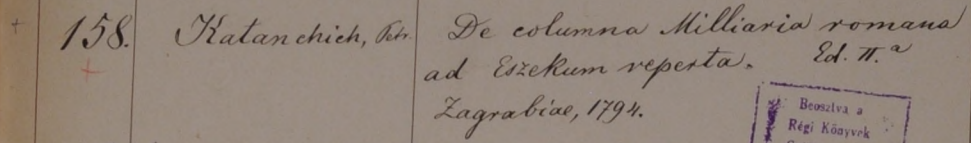 + 158. Katanchich, Petr. De columna Milliaria romana
+ ad Eszekum reperta. Ed. II.a
Zagrabiae, 1794.
Beosztva a
Régi Könyvek